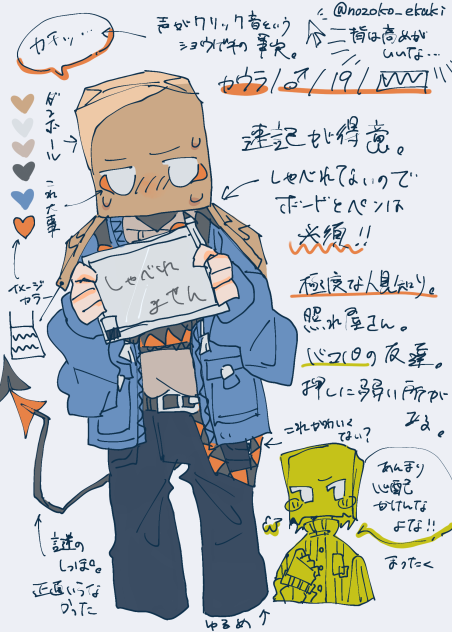 @nozoko_ekaki
カチッ…
声がクリック音という
ショウゲキの事実。
背は高めが
いいな…
カウラ/♂/19/
ダンボール→
これ大事
イメージ
カラー
速記が得意。
しゃべれてないので
ボードとペンは
必須!!
しゃべれ
ません
極度な人見知り。
照れ屋さん。
の友達。
押しに弱い所が
ある。
これかわいく
ない?
あんまり
心配
かけんな
よな!!
まったく
謎の
しっぽ。
正直いらな
かった
ゆるめ